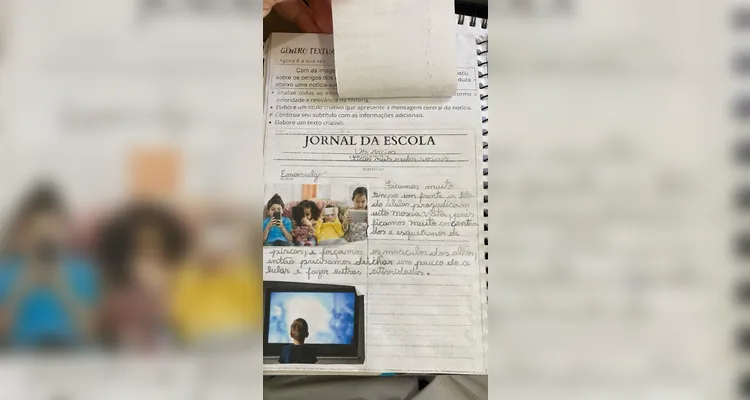 GÊNERO TEXTUA
1. Agora é a sua vez!
Com as image
sobre os perigos dos
abaixo uma notícia so
• Analise todas as info
prioridade e relevância na história.
• Elabore um título criativo que apresente a mensagem central da notícia.
• Construa seu subtítulo com as informações adicionais.
• Elabore um texto criativo.
JORNAL DA ESCOLA
Os vícios
nas redes sociais
Ficamos muito
tempo em frente a tela
do celular prejudicam
muito nossa vista, pois
ficamos muito concentra
dos e esquecemos de
piscar, e forçamos os musculos dos olhos,
então precisamos desligar um pouco do ce
lular e fazer outras atividades.